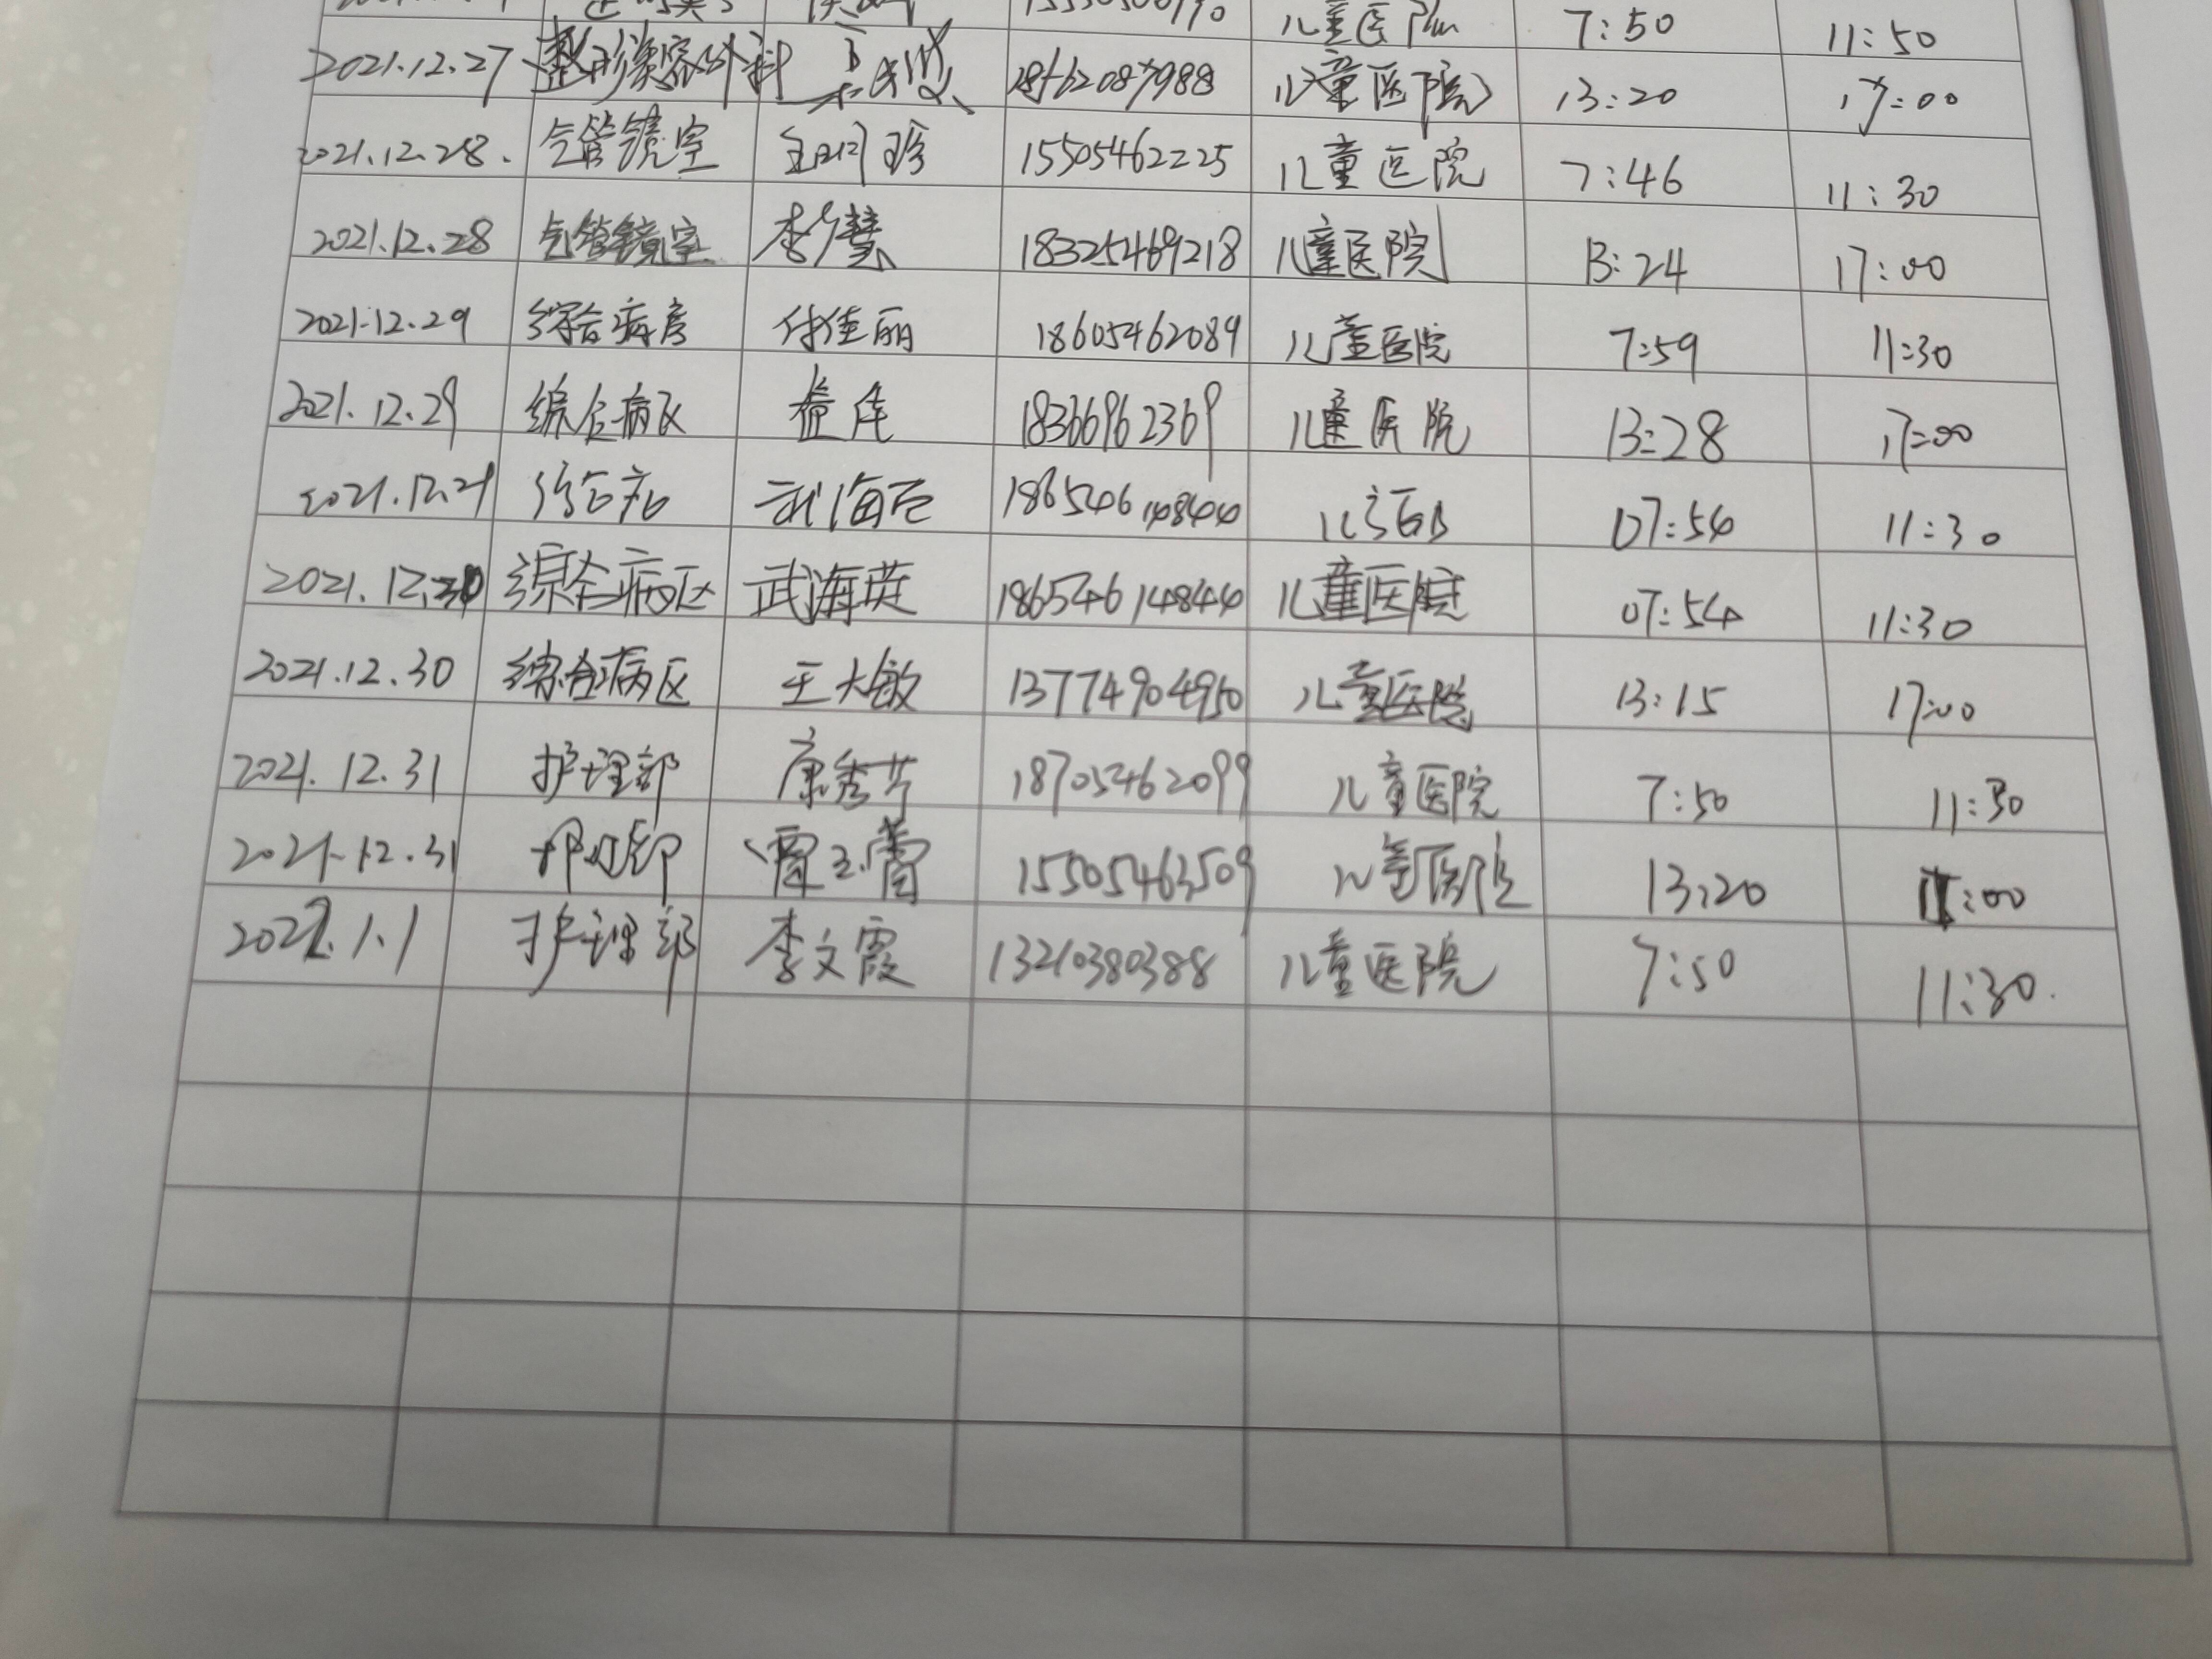 儿童医院 7:50 11:50
2021.12.27 整形美容外科 儿童医院 13:20 17:00
2021.12.28. 气管镜室 15505462225 儿童医院 7:46 11:30
2021.12.28 气管镜室 李慧 18325469218 儿童医院 13:24 17:00
2021.12.29 综合病房 付佳丽 18605462089 儿童医院 7:59 11:30
2021.12.29 综合病区 18366962369 儿童医院 13:28 17:00
2021.12.29 07:54 11:30
2021.12.30 综合病区 武海英 186546148444 儿童医院 07:54 11:30
2021.12.30 综合病区 王大敏 13774904950 儿童医院 13:15 17:00
2021.12.31 护理部 康秀芹 18705462099 儿童医院 7:50 11:30
2021.12.31 护理部 15505463509 儿童医院 13:20
2022.1.1 护理部 李文霞 13210380388 儿童医院 7:50 11:30.